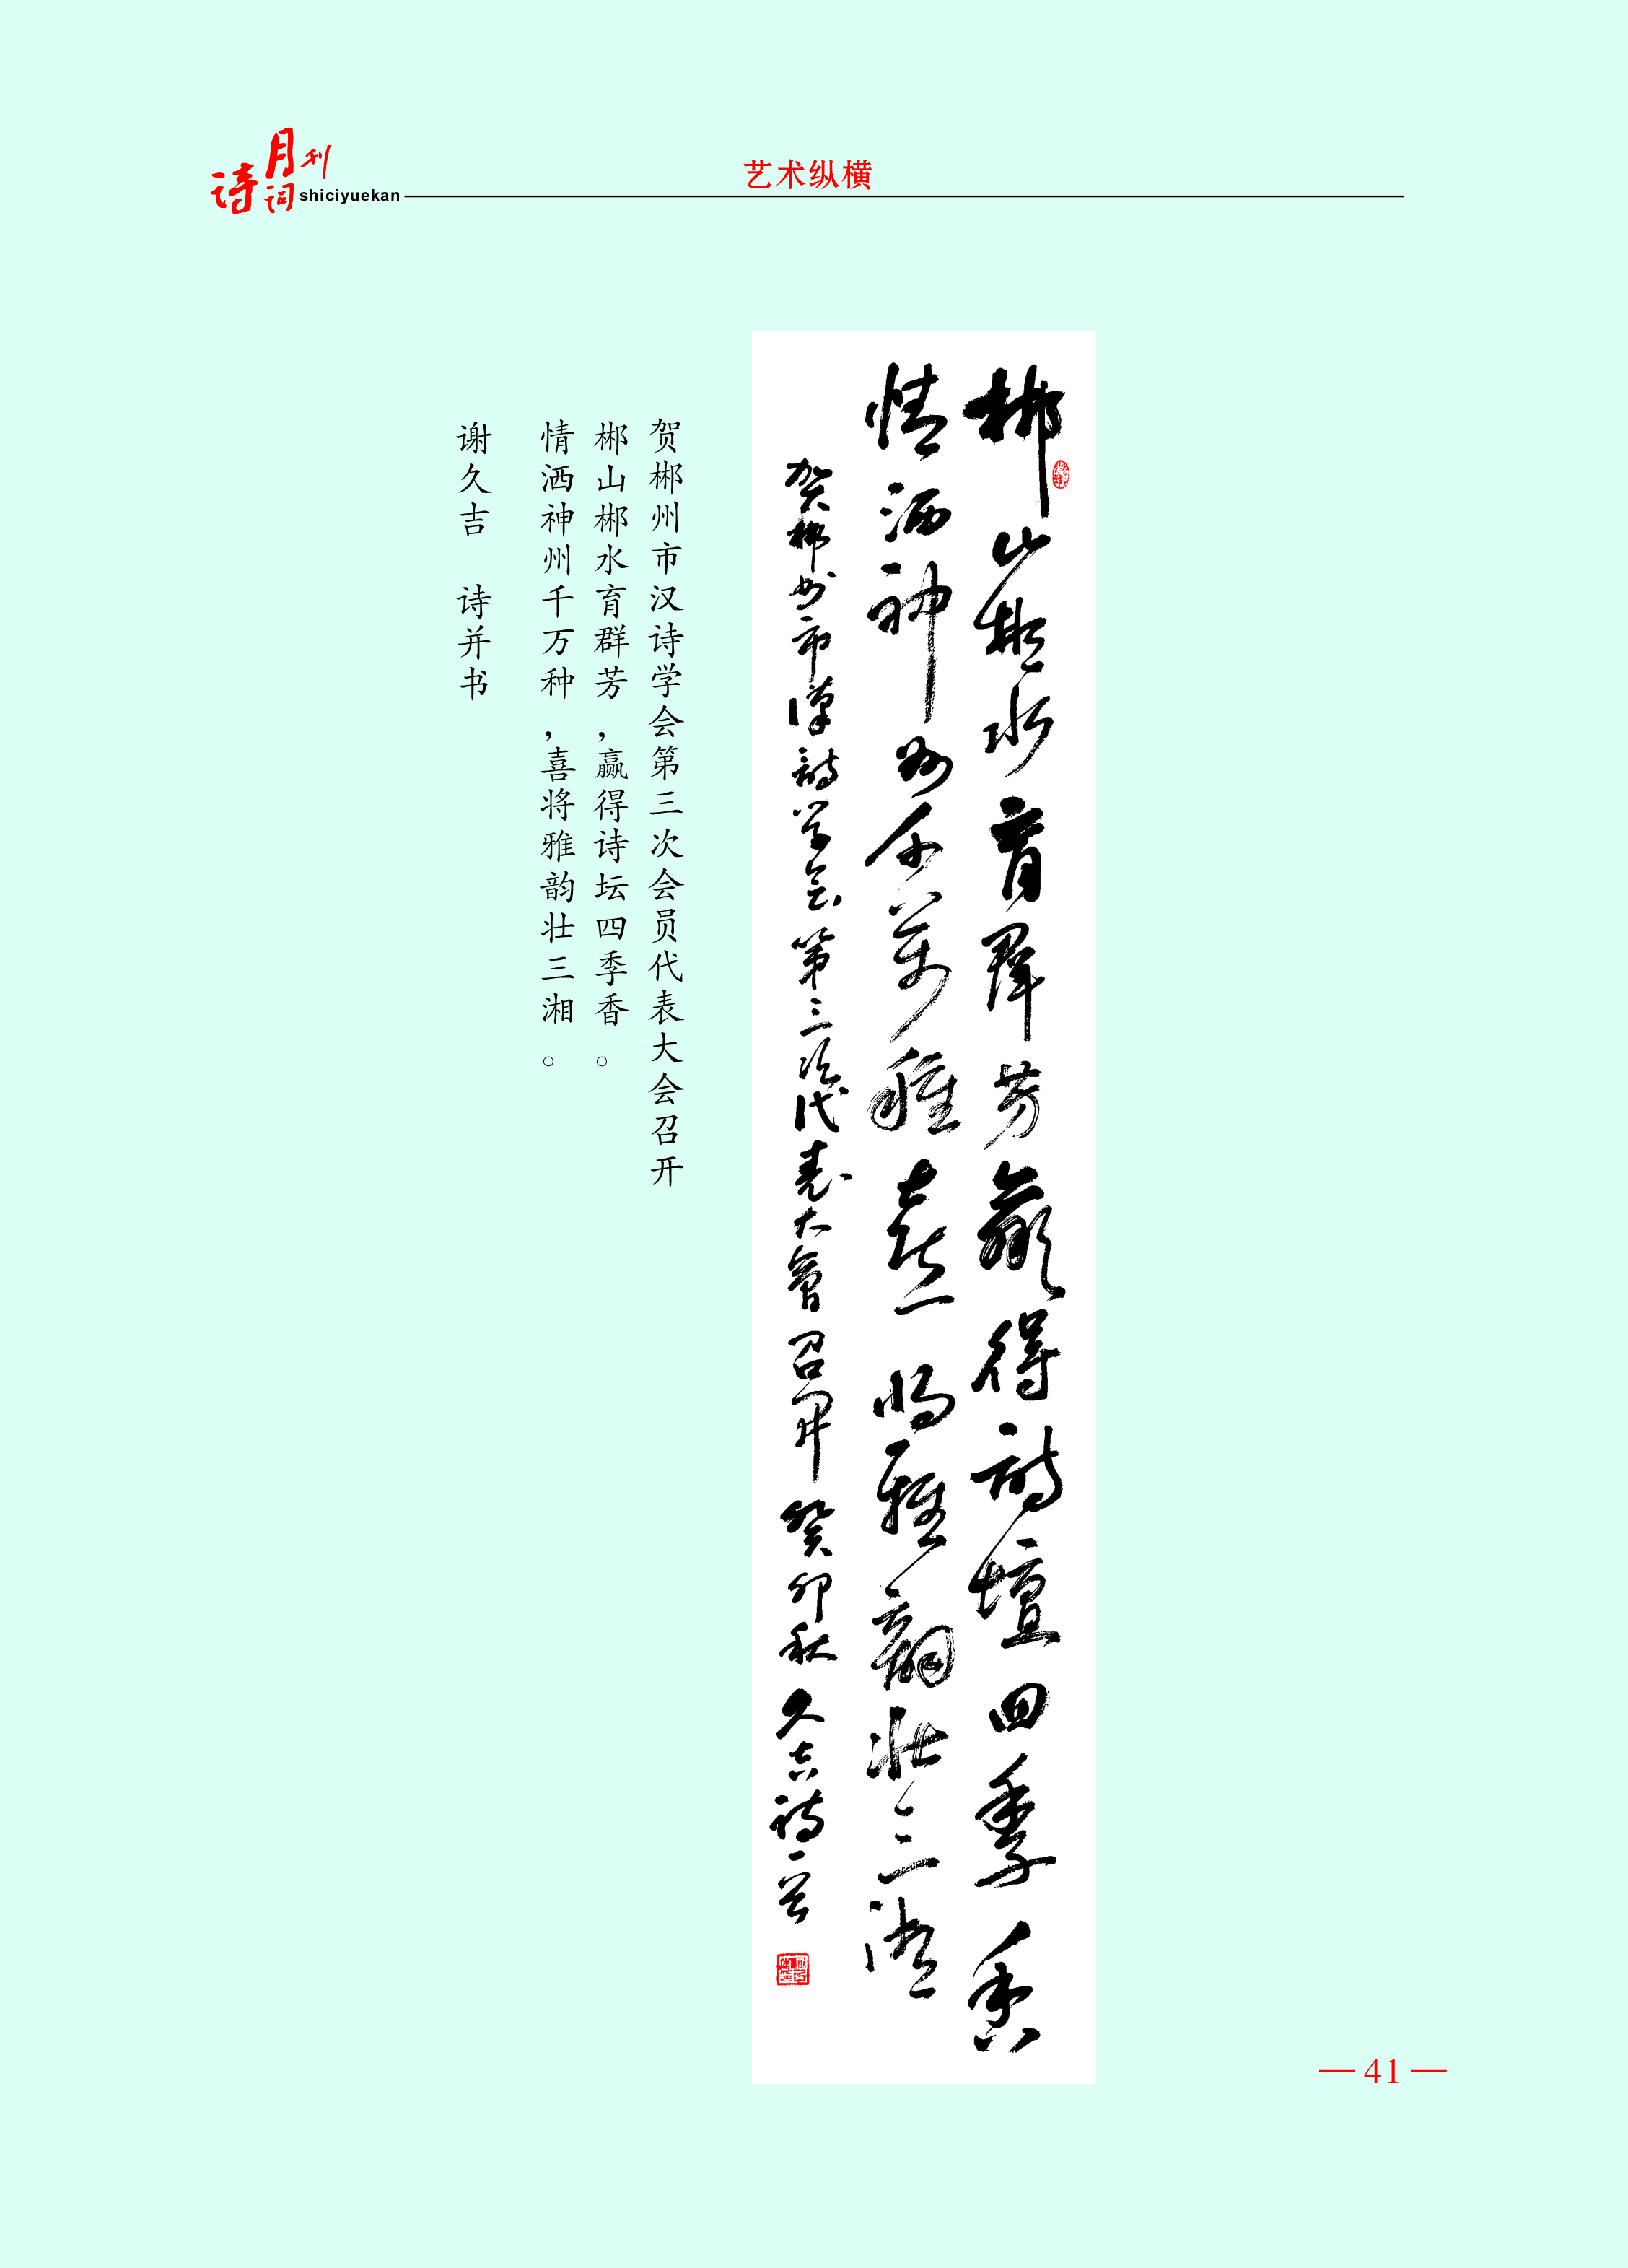 诗词月刊
shiciyuekan
艺术纵横
郴山郴水育群芳赢得诗壇四季香
情洒神州千萬種喜将雅韻壮三湘
贺郴州市漢詩学会第三次代表大會召開 癸卯秋 久吉詩并书
贺郴州市汉诗学会第三次会员代表大会召开
郴山郴水育群芳，赢得诗坛四季香。
情洒神州千万种，喜将雅韵壮三湘。
谢久吉　诗并书
— 41 —